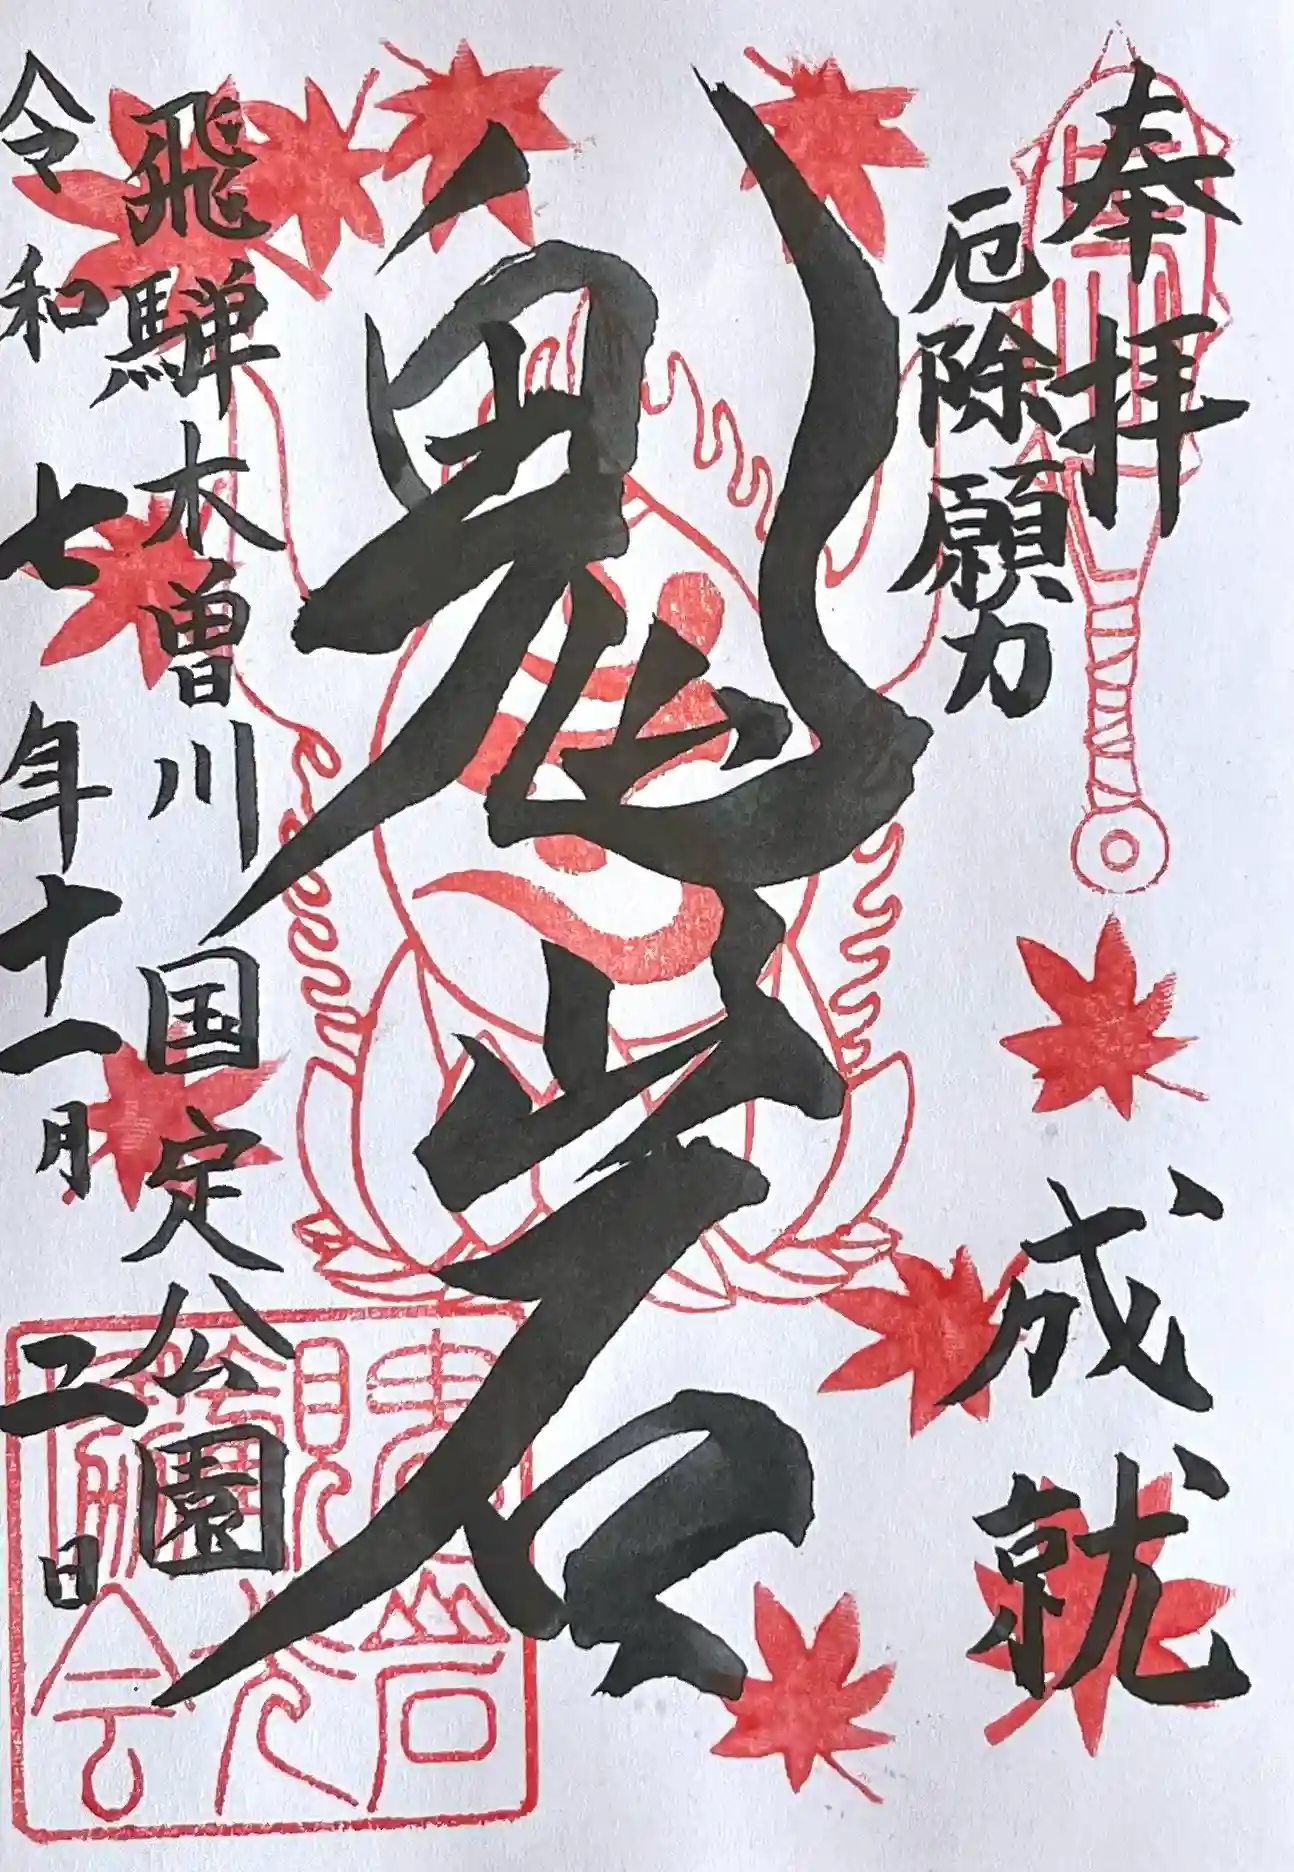 奉拝
厄除願力
成就
鬼岩
飛騨木曽川国定公園
令和七年十一月二日